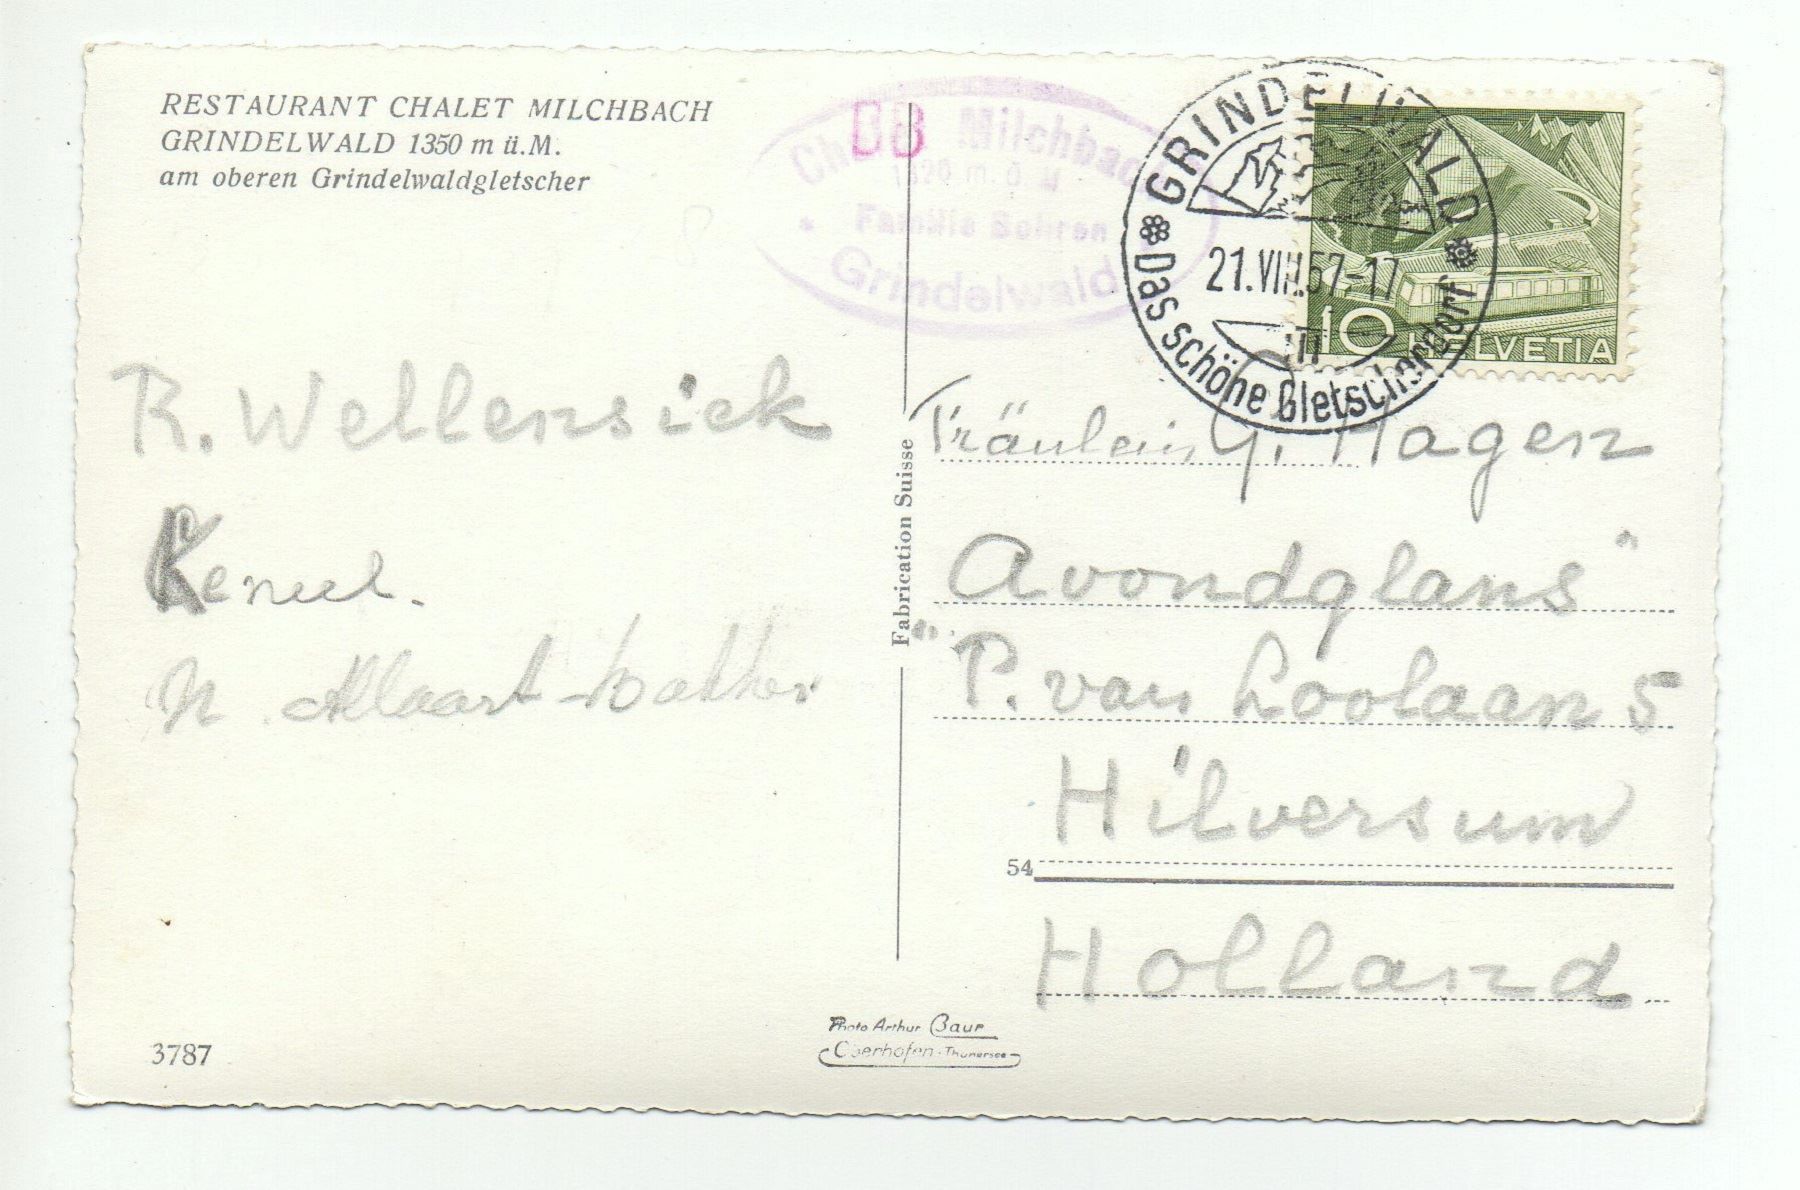 RESTAURANT CHALET MILCHBACH
GRINDELWALD 1350 m ü.M.
am oberen Grindelwaldgletscher
BB
Milchbach
Familie Bohren
Grindelwald
GRINDELWALD
21.VIII.57-17
Das schöne Gletscherdorf
10 HELVETIA
R. Wellensiek
N. Allaart-bakker
Fabrication Suisse
Fräulein Y. Hagen
Avondglans"
"P. van Loolaan 5
Hilversum
54
Holland
3787
Photo Arthur Baur
Oberhofen-Thunersee